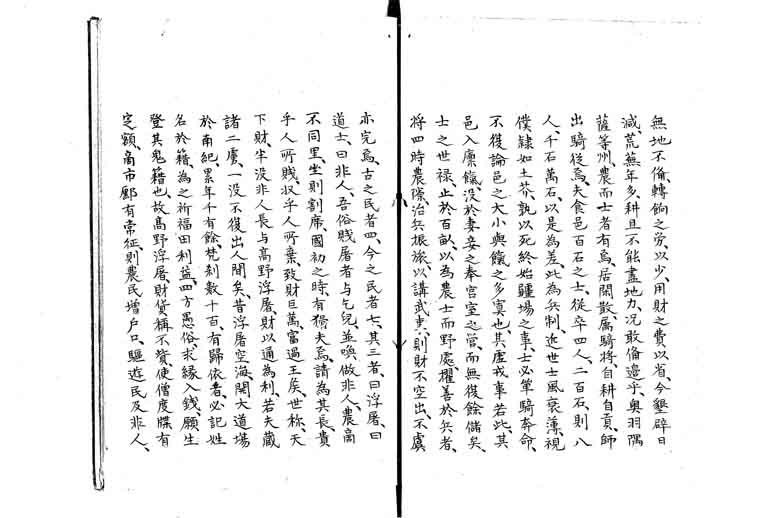 無地不偹、轉餉之労、以少用財之費、以省、今墾辟日
減、荒蕪年多、耕且不能盡地力、况敢偹邊乎、奥羽隅
薩等州、農而士者有焉、居閑散、属騎將、自耕自貢、師
出騎從焉、夫食邑百石之士、從卒四人、二百石則八
人、千石萬石、以是為差、此為兵制、近世士風衰薄、視
僕隷如土芥、孰以死終始疆場之事、士必單騎奔命、
不復論邑之大小與餼之多寡也、其虚戎事若此、其
邑入廩餼、没於妻妾之奉、宮室之營、而無復餘儲矣、
士之世禄、止於百畝、以為農士而野處、擢善於兵者、
將四時農隙、治兵振旅、以講武事、則財不空出、不虞
亦完焉、古之民者四、今之民者七、其三者、曰浮屠、曰
道士、曰非人、吾俗賤屠者与乞兒、並喚做非人、農商
不同里、坐則割席、國初之時、有猾夫焉、請為其長、貴
乎人所賤、収乎人所棄、致財巨萬、富過王侯、世称、天
下財、半没非人長与高野浮屠、財以通為利、若夫蔵
諸二虜、一没不復出人間矣、昔浮屠空海、開大道場
於南紀、累年千有餘、梵刹數十百、有歸依者、必記姓
名於籍、為之祈福田利益、四方愚俗、求縁入錢、願生
登其鬼籍也、故高野浮屠、財貨稱不貲、使僧度牒有
定額、商市郡有常征、則農民増戸口、驅遊民及非人、